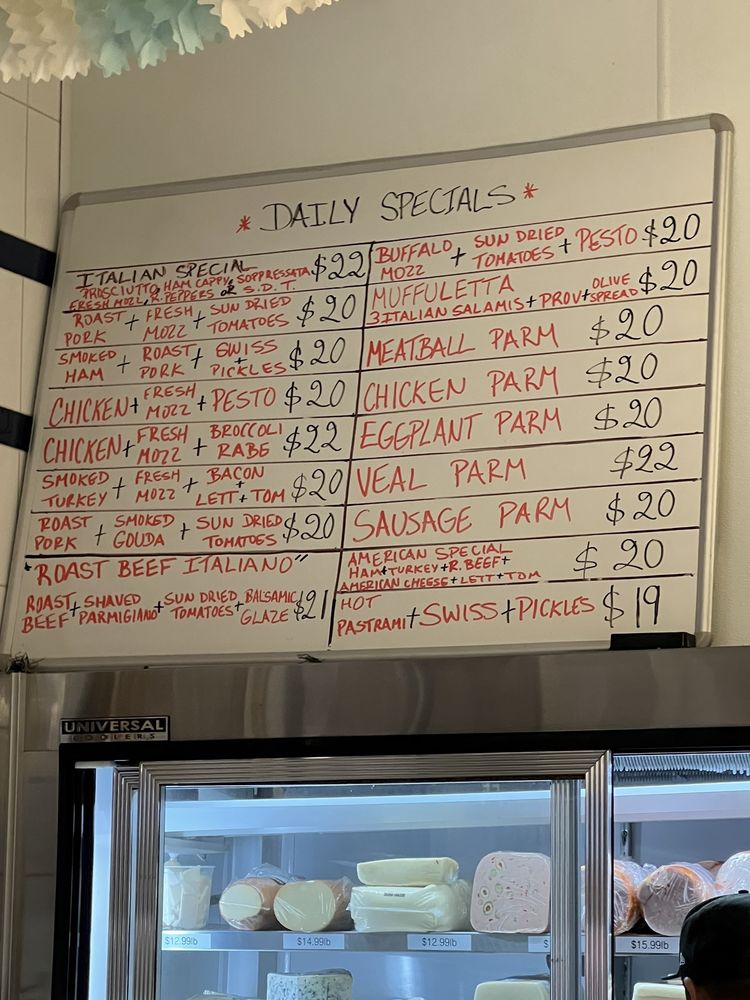 * DAILY SPECIALS *
ITALIAN SPECIAL $22
PROSCIUTTO, HAM CAPPY, SOPPRESSATA
FRESH MOZZ, R. PEPPERS OR S.D.T.
ROAST PORK + FRESH MOZZ + SUN DRIED TOMATOES $20
SMOKED HAM + ROAST PORK + SWISS + PICKLES $20
CHICKEN + FRESH MOZZ + PESTO $20
CHICKEN + FRESH MOZZ + BROCCOLI RABE $22
SMOKED TURKEY + FRESH MOZZ + BACON + LETT + TOM $20
ROAST PORK + SMOKED GOUDA + SUN DRIED TOMATOES $20
"ROAST BEEF ITALIANO"
ROAST BEEF + SHAVED PARMIGIANO + SUN DRIED TOMATOES + BALSAMIC GLAZE $21
BUFFALO MOZZ + SUN DRIED TOMATOES + PESTO $20
MUFFULETTA $20
3 ITALIAN SALAMIS + PROV + OLIVE SPREAD
MEATBALL PARM $20
CHICKEN PARM $20
EGGPLANT PARM $20
VEAL PARM $22
SAUSAGE PARM $20
AMERICAN SPECIAL $20
HAM + TURKEY + R. BEEF +
AMERICAN CHEESE + LETT + TOM
HOT PASTRAMI + SWISS + PICKLES $19
UNIVERSAL
COOLERS
$12.99lb
$14.99lb
$12.99lb
$15.99lb